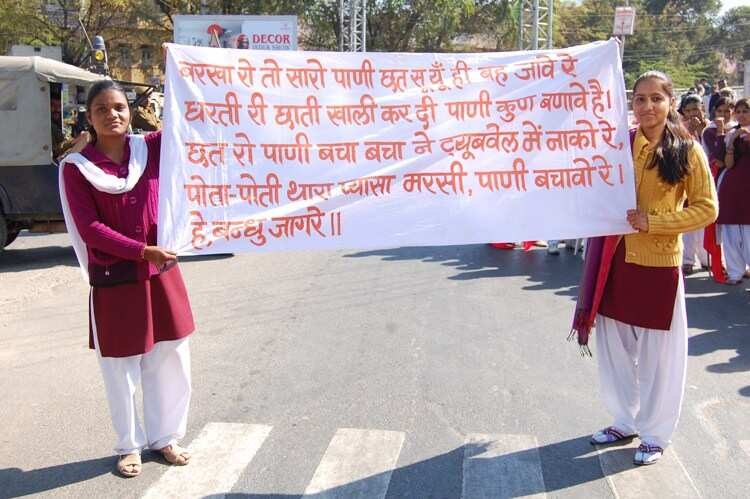 DECOR
बरखा रो तो सारो पाणी छत सू यूँ ही बह जावे रे
धरती री छाती खाली कर दी पाणी कुण बणावे है।
छत रो पाणी बचा बचा ने ट्यूबवेल में नाको रे,
पोता-पोती थारा प्यासा मरसी, पाणी बचावो रे।
हे, बन्धु जागरे॥